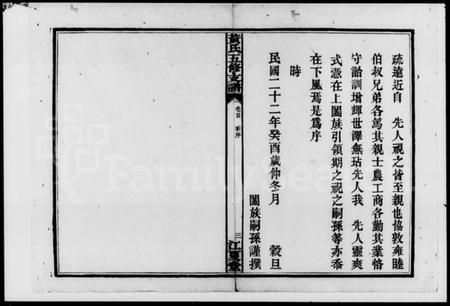 疏遠近自　先人視之皆至親也協敦雍睦
伯叔兄弟各為其親士農工商各勤其業恪
守詒訓增輝世澤無玷先人我　先人靈爽
式憑在上闔族引領期之視之嗣孫等亦忝
在下風焉是為序
時
民國二十二年癸酉歲仲冬月　穀旦
闔族嗣孫謹撰
黃氏五修支譜
卷首　新序
三
江夏堂
FamilySearch